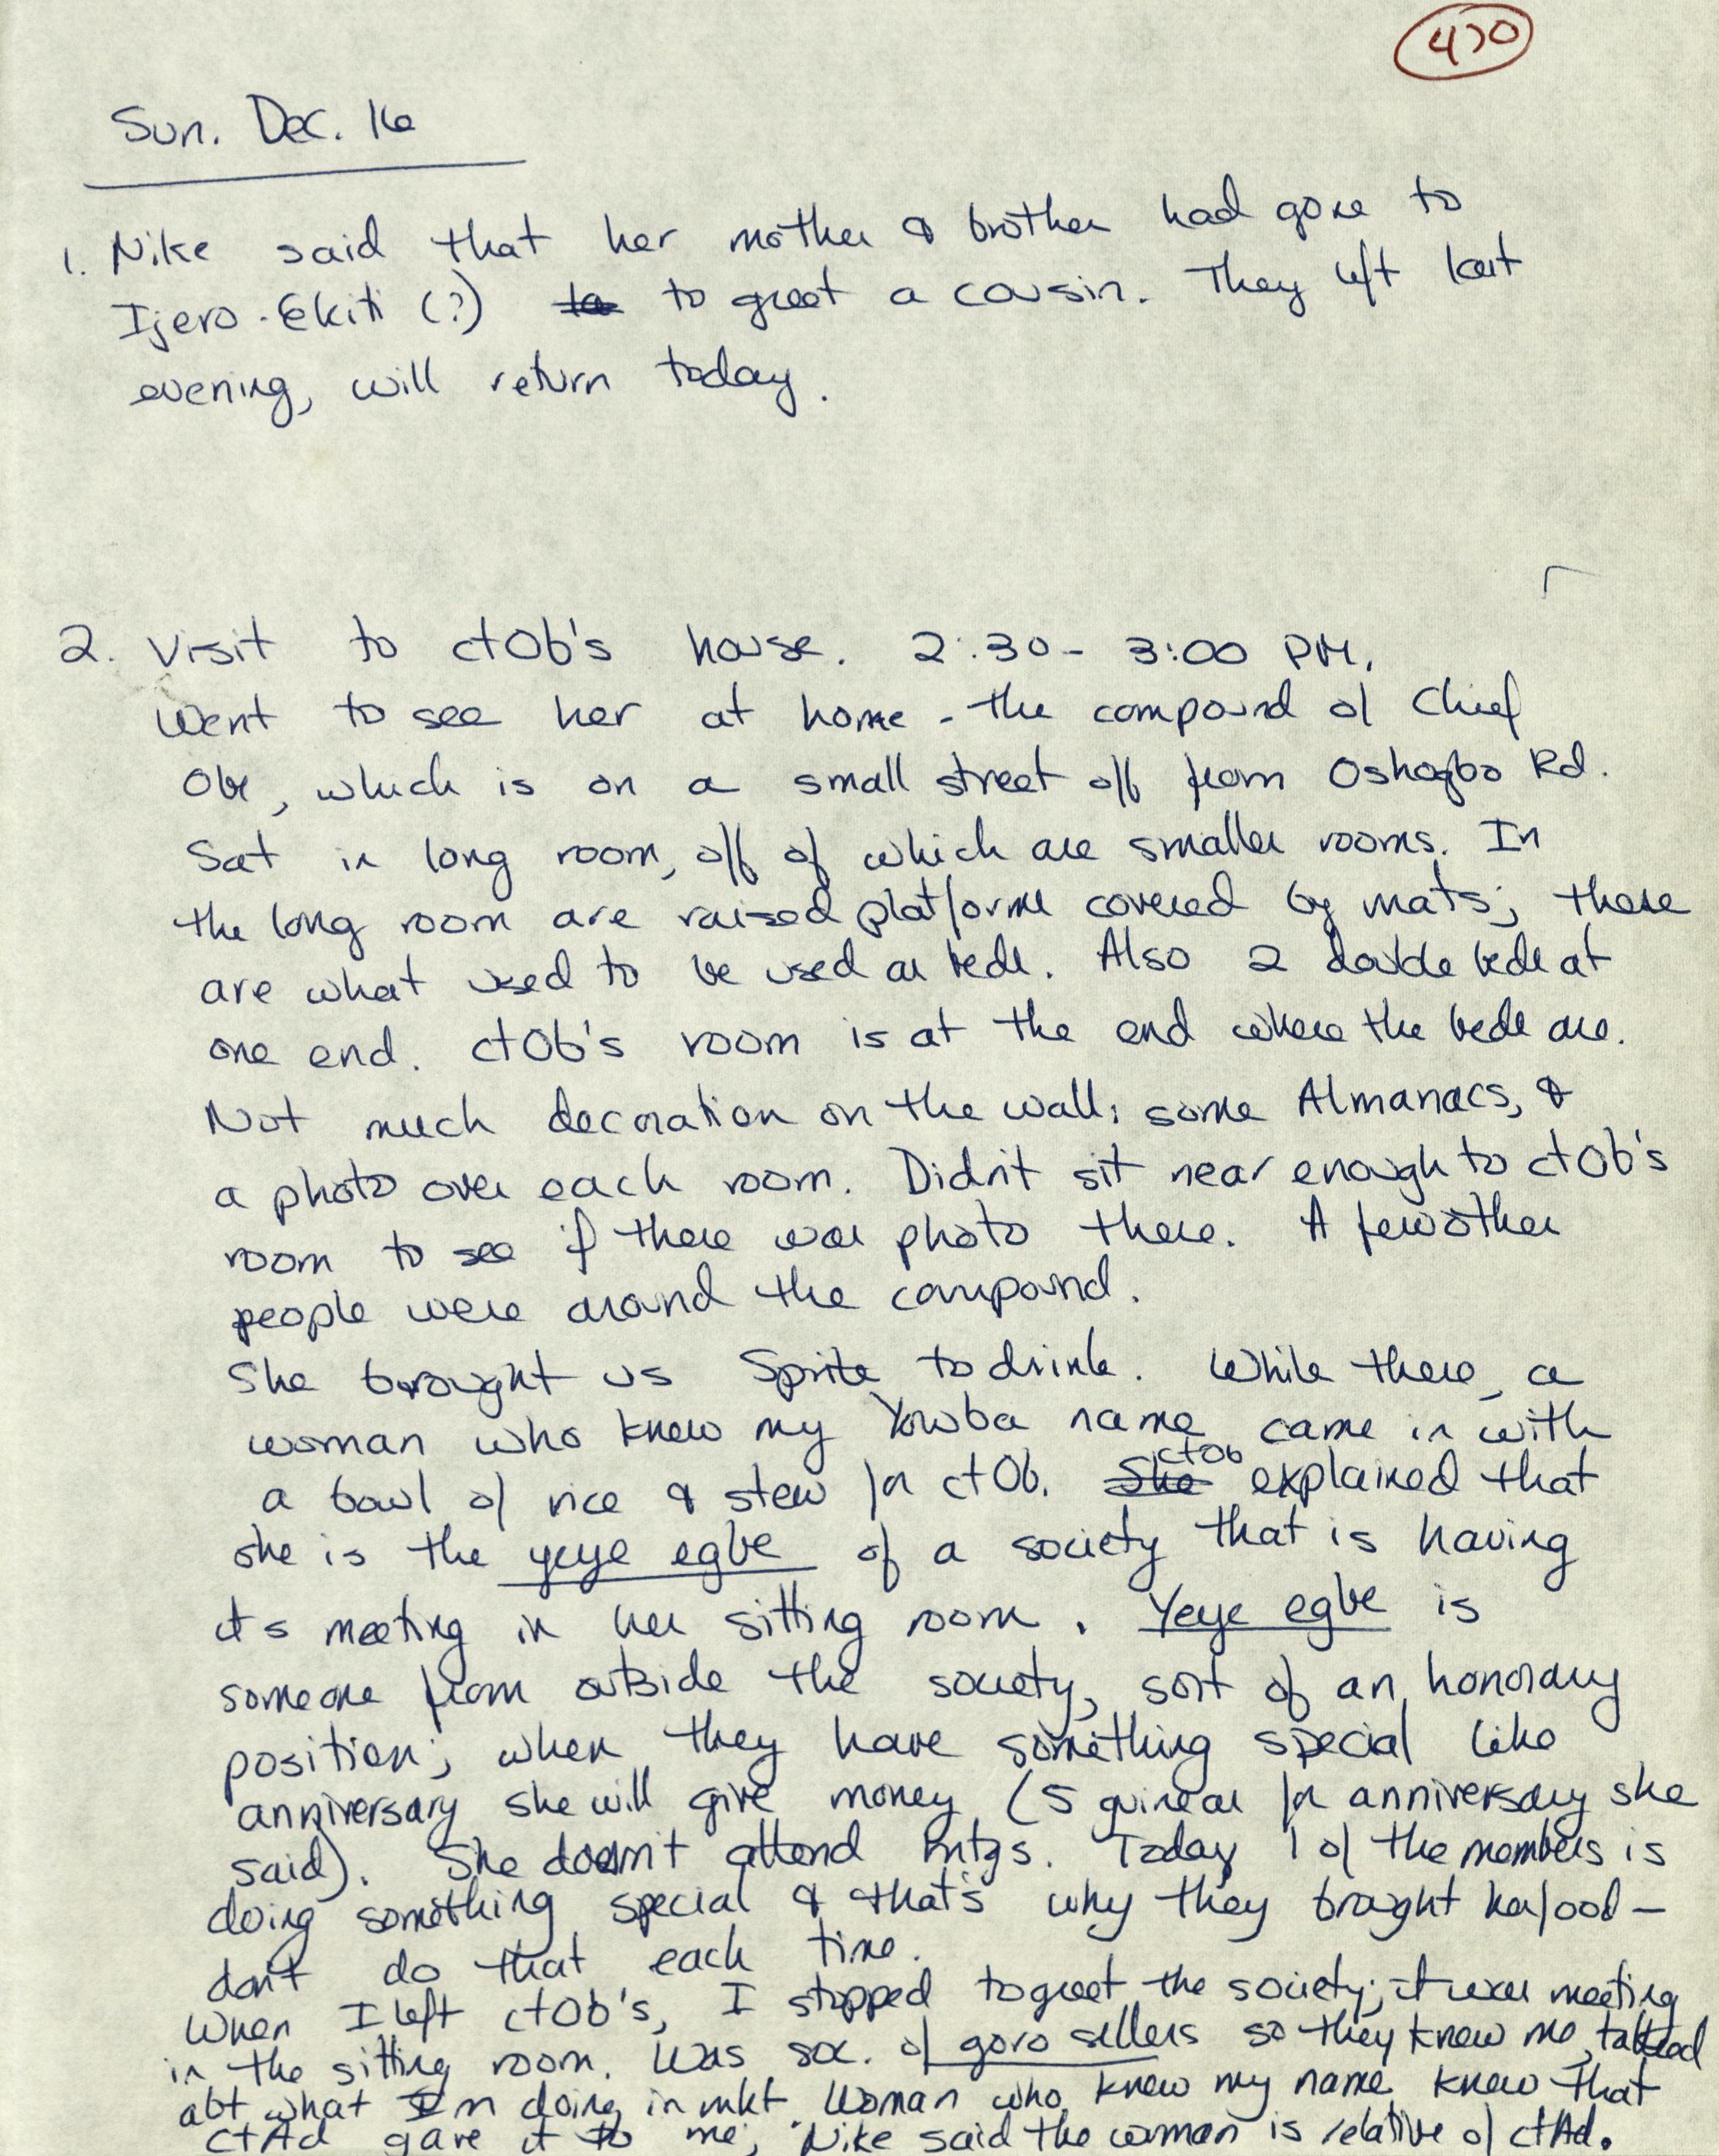 470
Sun. Dec. 16
1. Nike said that her mother & brother had gone to
Ijero-Ekiti (?) to greet a cousin. They left last
evening, will return today.
2. Visit to ctOb's house. 2:30 - 3:00 PM.
Went to see her at home - the compound of Chief
Obe, which is on a small street off from Oshogbo Rd.
Sat in long room, off of which are smaller rooms. In
the long room are raised platforms covered by mats; these
are what used to be used as beds. Also 2 double beds at
one end. ctOb's room is at the end where the beds are.
Not much decoration on the wall: some Almanacs, &
a photo over each room. Didn't sit near enough to ctOb's
room to see if there was photo there. A few other
people were around the compound.
She brought us Sprite to drink. While there, a
woman who knew my Yoruba name came in with
a bowl of rice & stew for ctOb. She ctOb explained that
she is the yeye egbe of a society that is having
its meeting in her sitting room. Yeye egbe is
someone from outside the society, sort of an honorary
position; when they have something special like
anniversary she will give money (5 guineas for anniversary she
said). She doesn't attend mtgs. Today 1 of the members is
doing something special & that's why they brought her food -
don't do that each time.
When I left ctOb's, I stopped to greet the society; it was meeting
in the sitting room. Was soc. of goro sellers so they knew me, talked
abt what I'm doing in mkt. Woman who knew my name knew that
ctAd gave it to me; Nike said the woman is relative of ctAd.